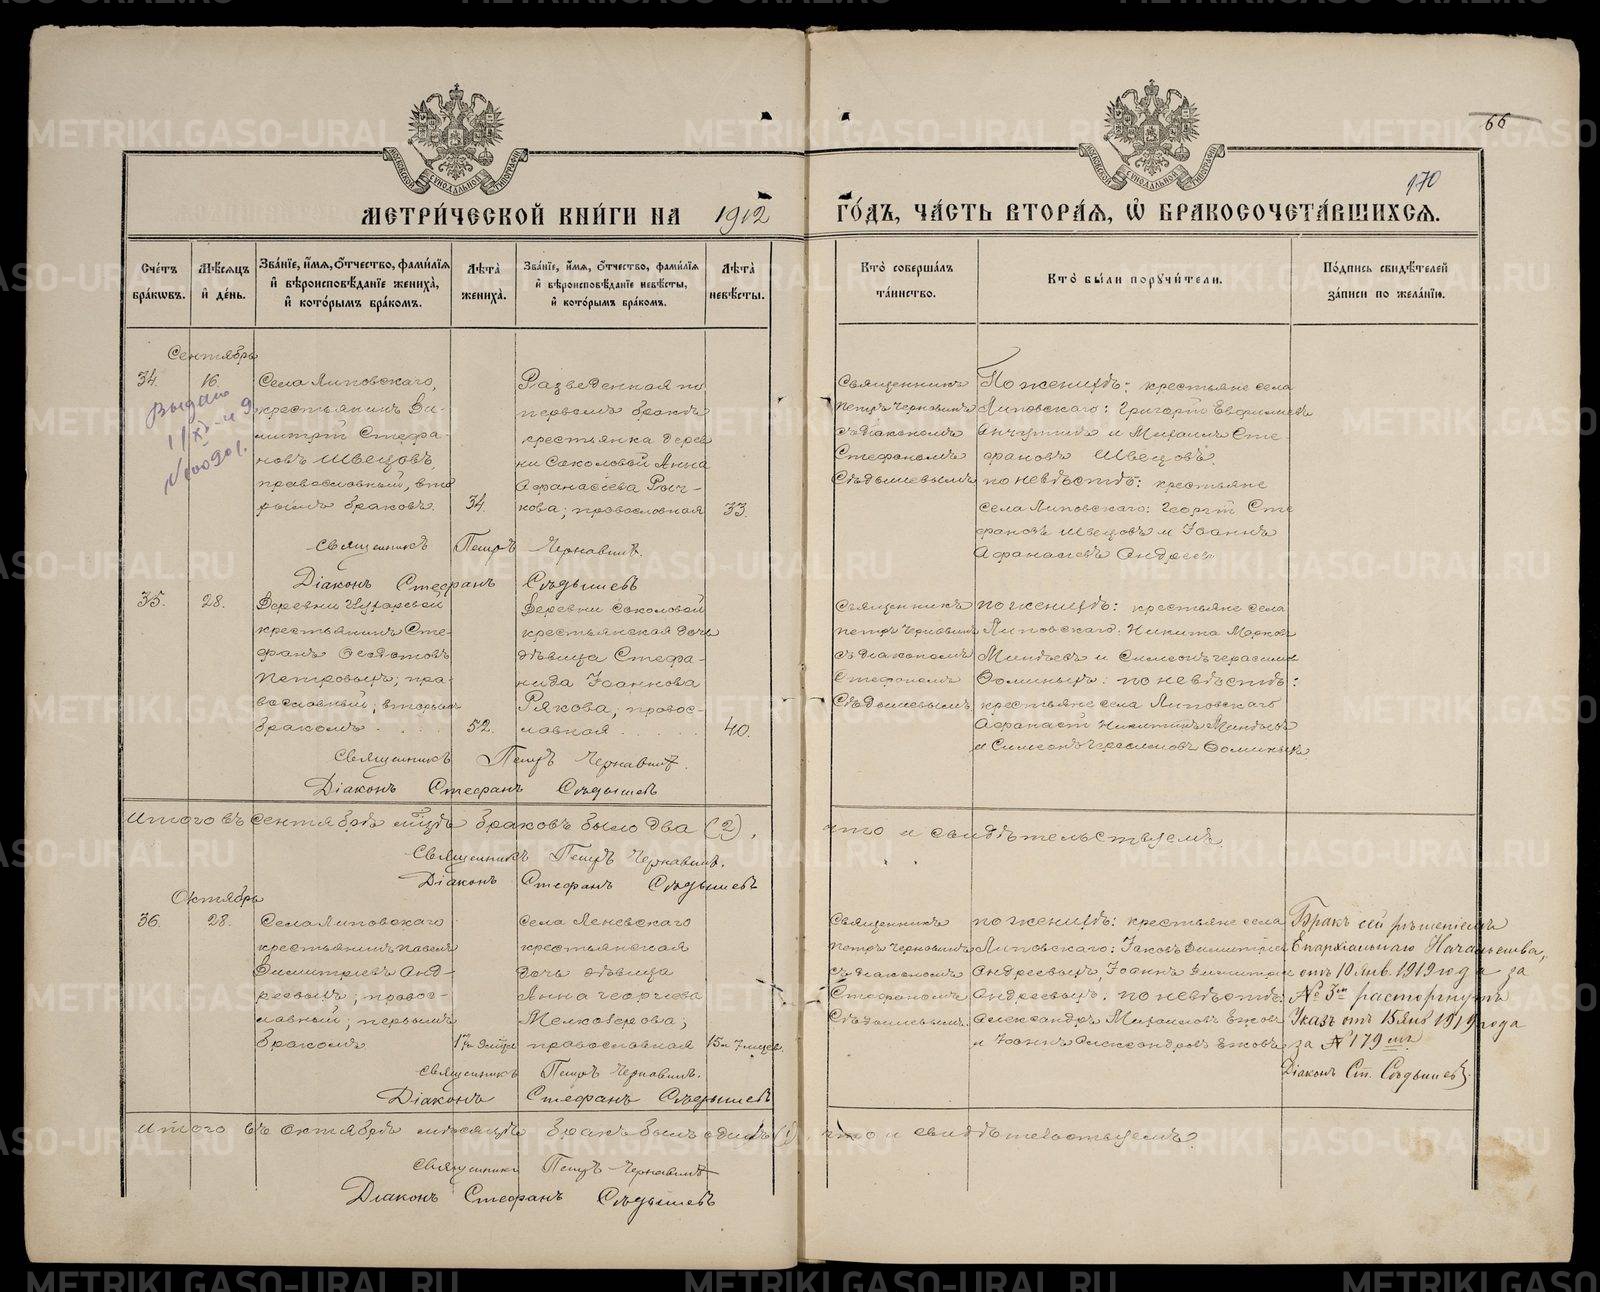 66
170
МЕТРИ́ЧЕСКОЙ КНИ́ГИ НА 1912 ГО́ДЪ, ЧА́СТЬ ВТОРА́Я, Ѡ БРАКОСОЧЕТА́ВШИХСЯ.
Сче́тъ бра́кѡвъ.
Мѣ́сяцъ и де́нь.
Зва́нїе, и́мя, ѻ́тчество, фами́лїя и вѣроисповѣ́данїе жениха́, и кото́рымъ бра́комъ.
Лѣ́та жениха́.
Зва́нїе, и́мя, ѻ́тчество, фами́лїя и вѣроисповѣ́данїе невѣ́сты, и кото́рымъ бра́комъ.
Лѣ́та невѣ́сты.
Кто̀ соверша́лъ та́инство.
Кто̀ бы́ли порꙋчи́тели.
По́дпись свидѣ́телей за́писи по жела́нїю.
Сентябрь
34.
16.
Выдано
Села Липовскаго,
крестьянинъ Ди-
митрій Стефа-
новъ Швецовъ,
православный, вто
рымъ бракомъ.
34.
Разведенная по
первомъ бракѣ
крестьянка дерев
ни Соколовой Анна
Афанасіева Рыч-
кова; православная
33.
Священникъ
Петръ Чернавинъ
съ діакономъ
Стефаномъ
Сѣдышевымъ
По женихѣ: крестьяне села
Липовскаго: Григорій Евфиміевъ
и Михаилъ Сте-
фановъ Швецовъ.
по невѣстѣ: крестьяне
села Липовскаго: Георгій Сте
фановъ Швецовъ и Іоаннъ
Афанасіевъ Андреев
Священникъ Петръ Чернавинъ.
Діаконъ Стефанъ Сѣдышевъ
35.
28.
Деревни
крестьянинъ Сте-
фанъ Ѳеоктистовъ
Петровыхъ; пра-
вославный; вторымъ
бракомъ
52.
Деревни Соколовой
крестьянская дочь
дѣвица Стефа-
нида Іоаннова
Рякова; правос-
лавная
40.
Священникъ
Петръ Чернавинъ
съ діакономъ
Стефаномъ
Сѣдышевымъ
по женихѣ: крестьяне села
Липовскаго: Никита Марковъ
Миньевъ и Симеонъ Герасимовъ
Ѳоминыхъ: по невѣстѣ:
крестьяне села Липовскаго
Афанасій Никитинъ Миньевъ
и Симеонъ Герасимовъ Ѳоминыхъ
Священникъ Петръ Чернавинъ.
Діаконъ Стефанъ Сѣдышевъ
Итого въ сентябрѣ мѣсяцѣ браковъ было два (2), что и свидѣтельствуемъ.
Священникъ Петръ Чернавинъ.
Діаконъ Стефанъ Сѣдышевъ
Октябрь
36.
28.
Села Липовскаго
крестьянинъ Павелъ
Димитріевъ Анд-
реевыхъ; правос-
лавный; первымъ
бракомъ
17 л. 9 мѣся
Села Леневскаго
крестьянская
дочь дѣвица
Анна Георгіева
Мелкозерова;
православная
15 л. 7 мѣсяц.
Священникъ
Петръ Чернавинъ
съ діакономъ
Стефаномъ
Сѣдышевымъ
по женихѣ: крестьяне села
Липовскаго: Іаковъ Димитріев
Андреевыхъ, Іоаннъ Димитріев
Андреевыхъ. по невѣстѣ:
Александръ Михаиловъ Ежовъ
и Іоаннъ Александровъ Ежовъ
Бракъ сей рѣшеніемъ
Епархіальнаго Начальства,
отъ 10 янв. 1919 года за
№ 3мъ расторгнутъ
Указъ отъ 15 янв 1919 года
за № 179мъ
Діаконъ Ст. Сѣдышевъ.
Священникъ Петръ Чернавинъ.
Діаконъ Стефанъ Сѣдышевъ
Итого въ октябрѣ мѣсяцѣ бракъ былъ одинъ (1), что и свидѣтельствуемъ.
Священникъ Петръ Чернавинъ
Діаконъ Стефанъ Сѣдышевъ
METRIKI.GASO-URAL.RU